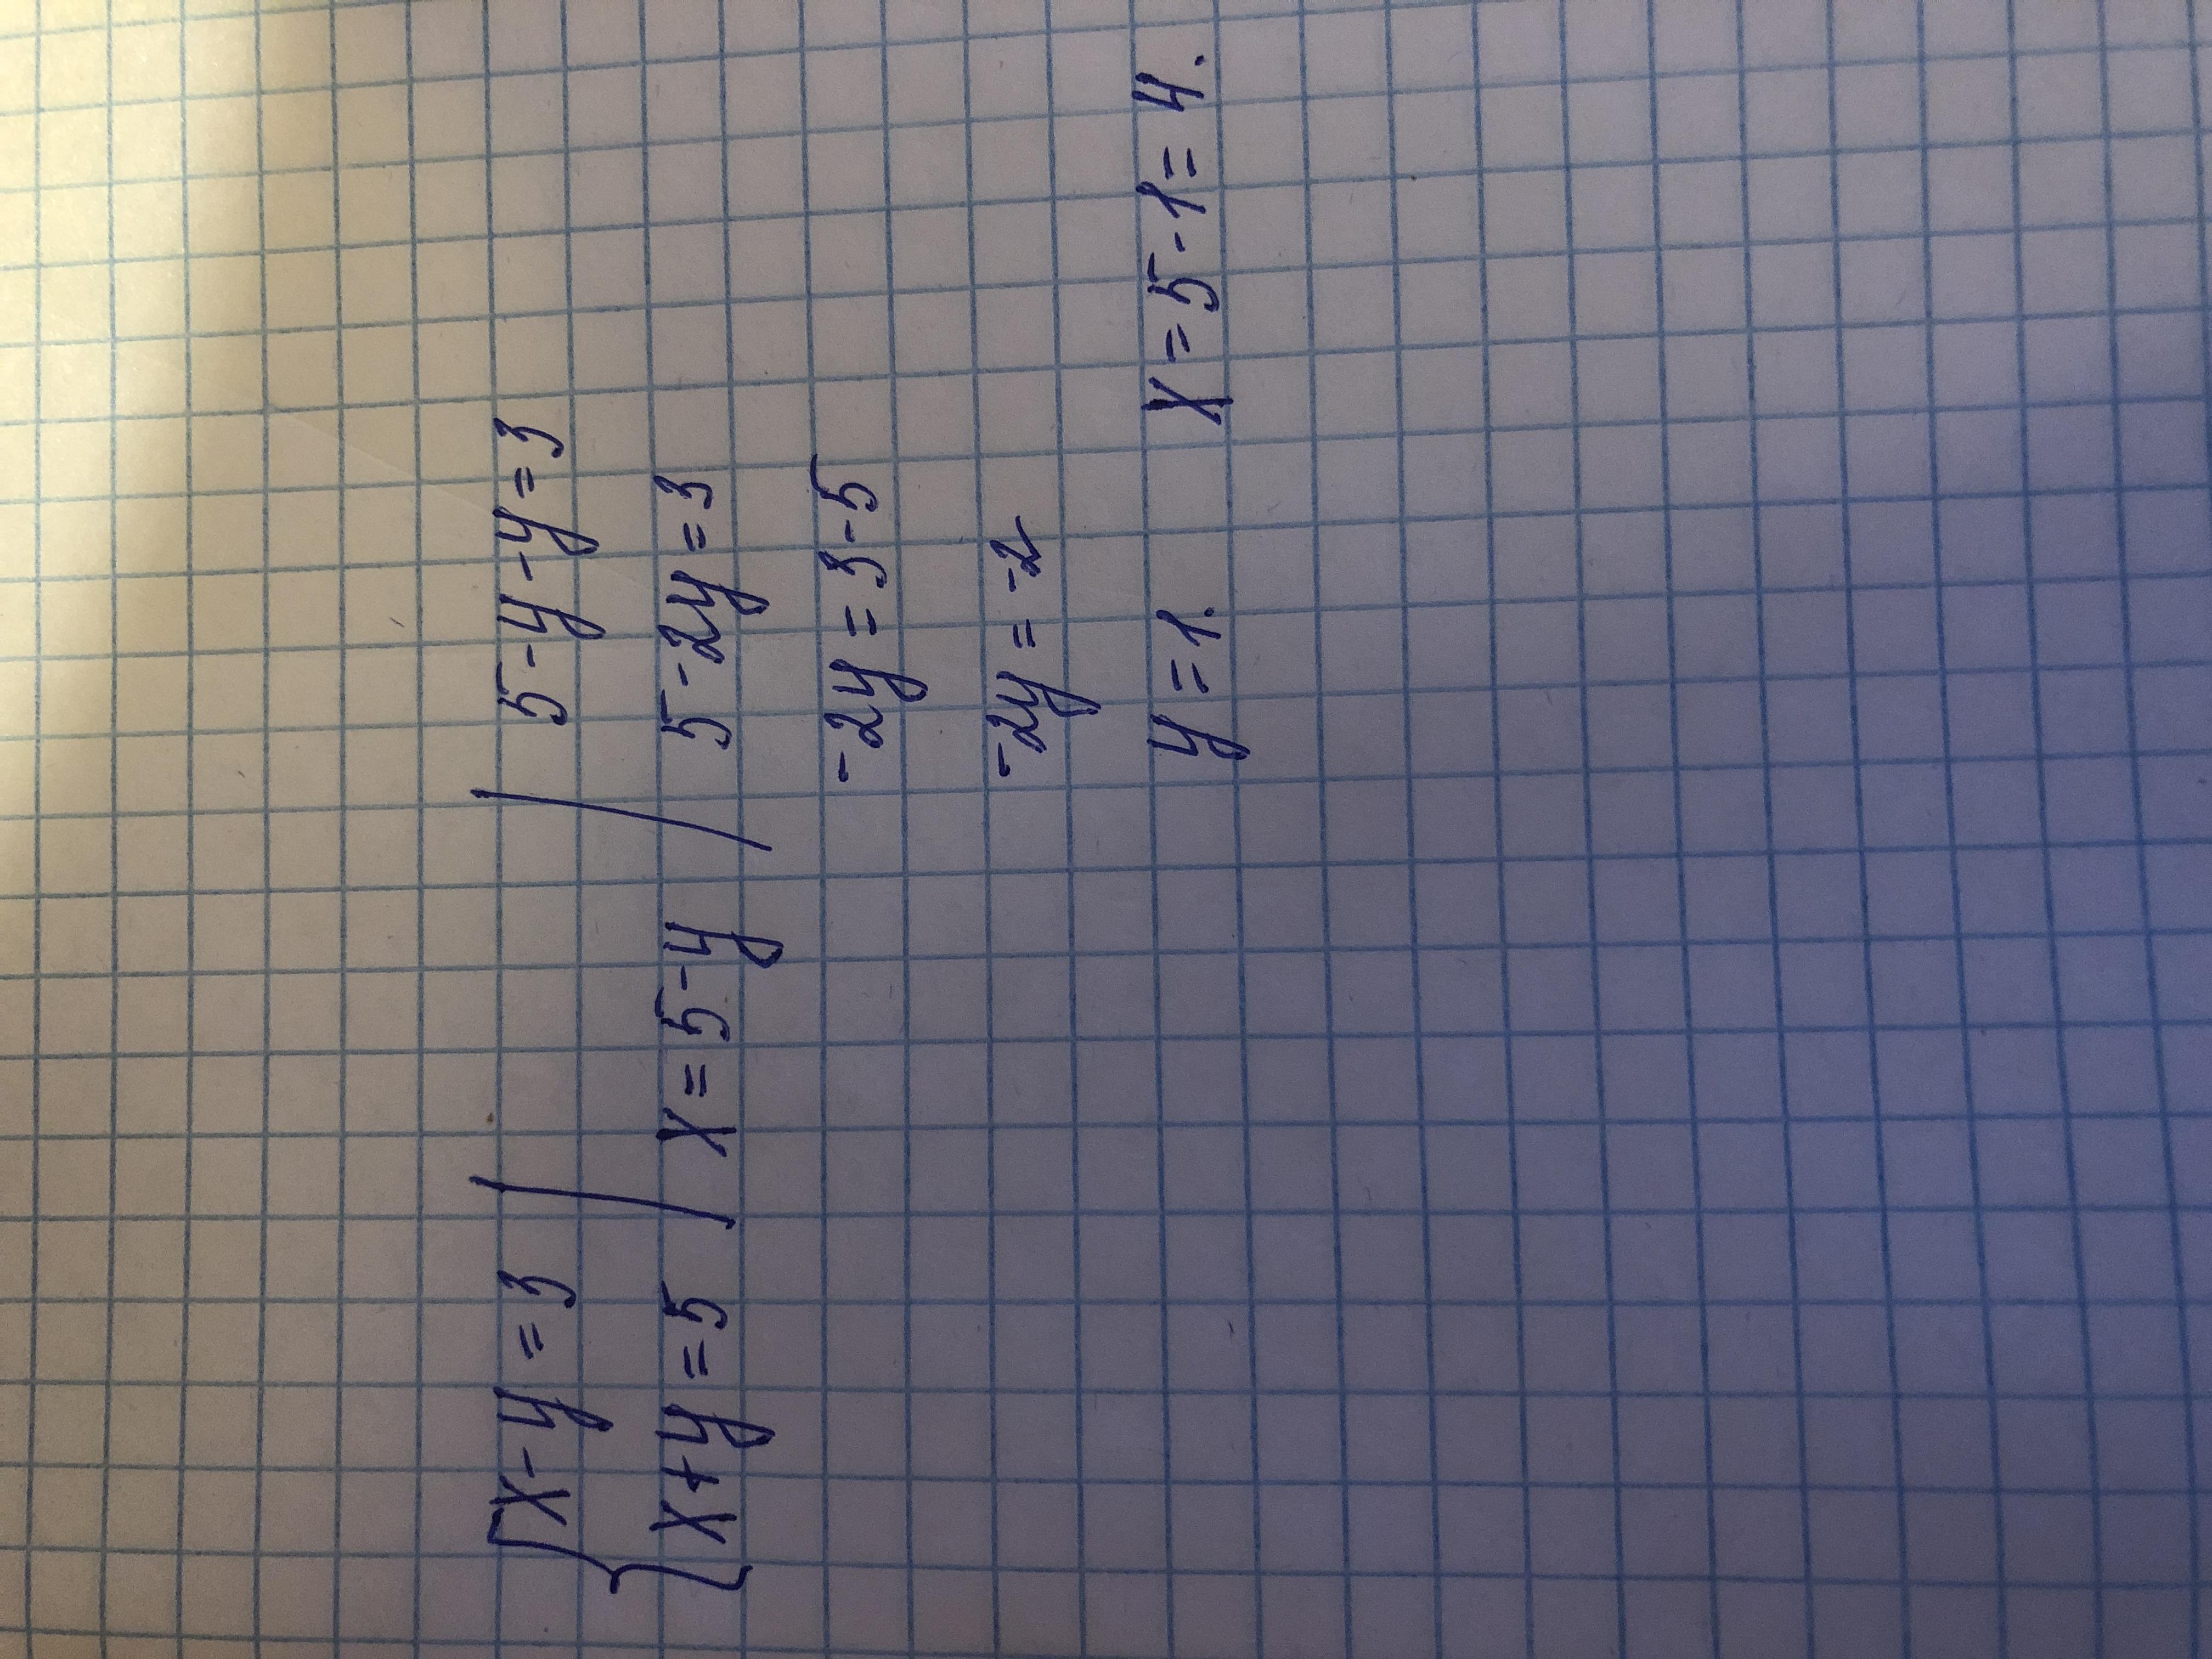 {x-y=3 | 5-y-y=3
x+y=5 | x=5-y | 5-2y=3
-2y=3-5
-2y=-2
y=1. x=5-1=4.